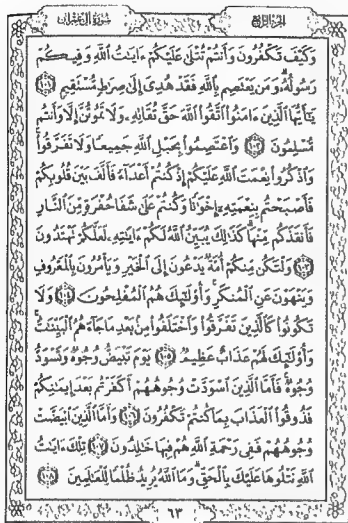 سورة آل عمران
الجزء الرابع
وَكَيْفَ تَكْفُرُونَ وَأَنتُمْ تُتْلَىٰ عَلَيْكُمْ ءَايَٰتُ ٱللَّهِ وَفِيكُمْ
رَسُولُهُۥ وَمَن يَعْتَصِم بِٱللَّهِ فَقَدْ هُدِىَ إِلَىٰ صِرَٰطٍ مُّسْتَقِيمٍ ١٠١
يَٰٓأَيُّهَا ٱلَّذِينَ ءَامَنُوا۟ ٱتَّقُوا۟ ٱللَّهَ حَقَّ تُقَاتِهِۦ وَلَا تَمُوتُنَّ إِلَّا وَأَنتُم
مُّسْلِمُونَ ١٠٢ وَٱعْتَصِمُوا۟ بِحَبْلِ ٱللَّهِ جَمِيعًا وَلَا تَفَرَّقُوا۟
وَٱذْكُرُوا۟ نِعْمَتَ ٱللَّهِ عَلَيْكُمْ إِذْ كُنتُمْ أَعْدَآءً فَأَلَّفَ بَيْنَ قُلُوبِكُمْ
فَأَصْبَحْتُم بِنِعْمَتِهِۦٓ إِخْوَٰنًا وَكُنتُمْ عَلَىٰ شَفَا حُفْرَةٍ مِّنَ ٱلنَّارِ
فَأَنقَذَكُم مِّنْهَا كَذَٰلِكَ يُبَيِّنُ ٱللَّهُ لَكُمْ ءَايَٰتِهِۦ لَعَلَّكُمْ تَهْتَدُونَ
١٠٣ وَلْتَكُن مِّنكُمْ أُمَّةٌ يَدْعُونَ إِلَى ٱلْخَيْرِ وَيَأْمُرُونَ بِٱلْمَعْرُوفِ
وَيَنْهَوْنَ عَنِ ٱلْمُنكَرِ وَأُو۟لَٰٓئِكَ هُمُ ٱلْمُفْلِحُونَ ١٠٤ وَلَا
تَكُونُوا۟ كَٱلَّذِينَ تَفَرَّقُوا۟ وَٱخْتَلَفُوا۟ مِنۢ بَعْدِ مَا جَآءَهُمُ ٱلْبَيِّنَٰتُ
وَأُو۟لَٰٓئِكَ لَهُمْ عَذَابٌ عَظِيمٌ ١٠٥ يَوْمَ تَبْيَضُّ وُجُوهٌ وَتَسْوَدُّ
وُجُوهٌ فَأَمَّا ٱلَّذِينَ ٱسْوَدَّتْ وُجُوهُهُمْ أَكَفَرْتُم بَعْدَ إِيمَٰنِكُمْ
فَذُوقُوا۟ ٱلْعَذَابَ بِمَا كُنتُمْ تَكْفُرُونَ ١٠٦ وَأَمَّا ٱلَّذِينَ ٱبْيَضَّتْ
وُجُوهُهُمْ فَفِى رَحْمَةِ ٱللَّهِ هُمْ فِيهَا خَٰلِدُونَ ١٠٧ تِلْكَ ءَايَٰتُ
ٱللَّهِ نَتْلُوهَا عَلَيْكَ بِٱلْحَقِّ وَمَا ٱللَّهُ يُرِيدُ ظُلْمًا لِّلْعَٰلَمِينَ ١٠٨
٦٣